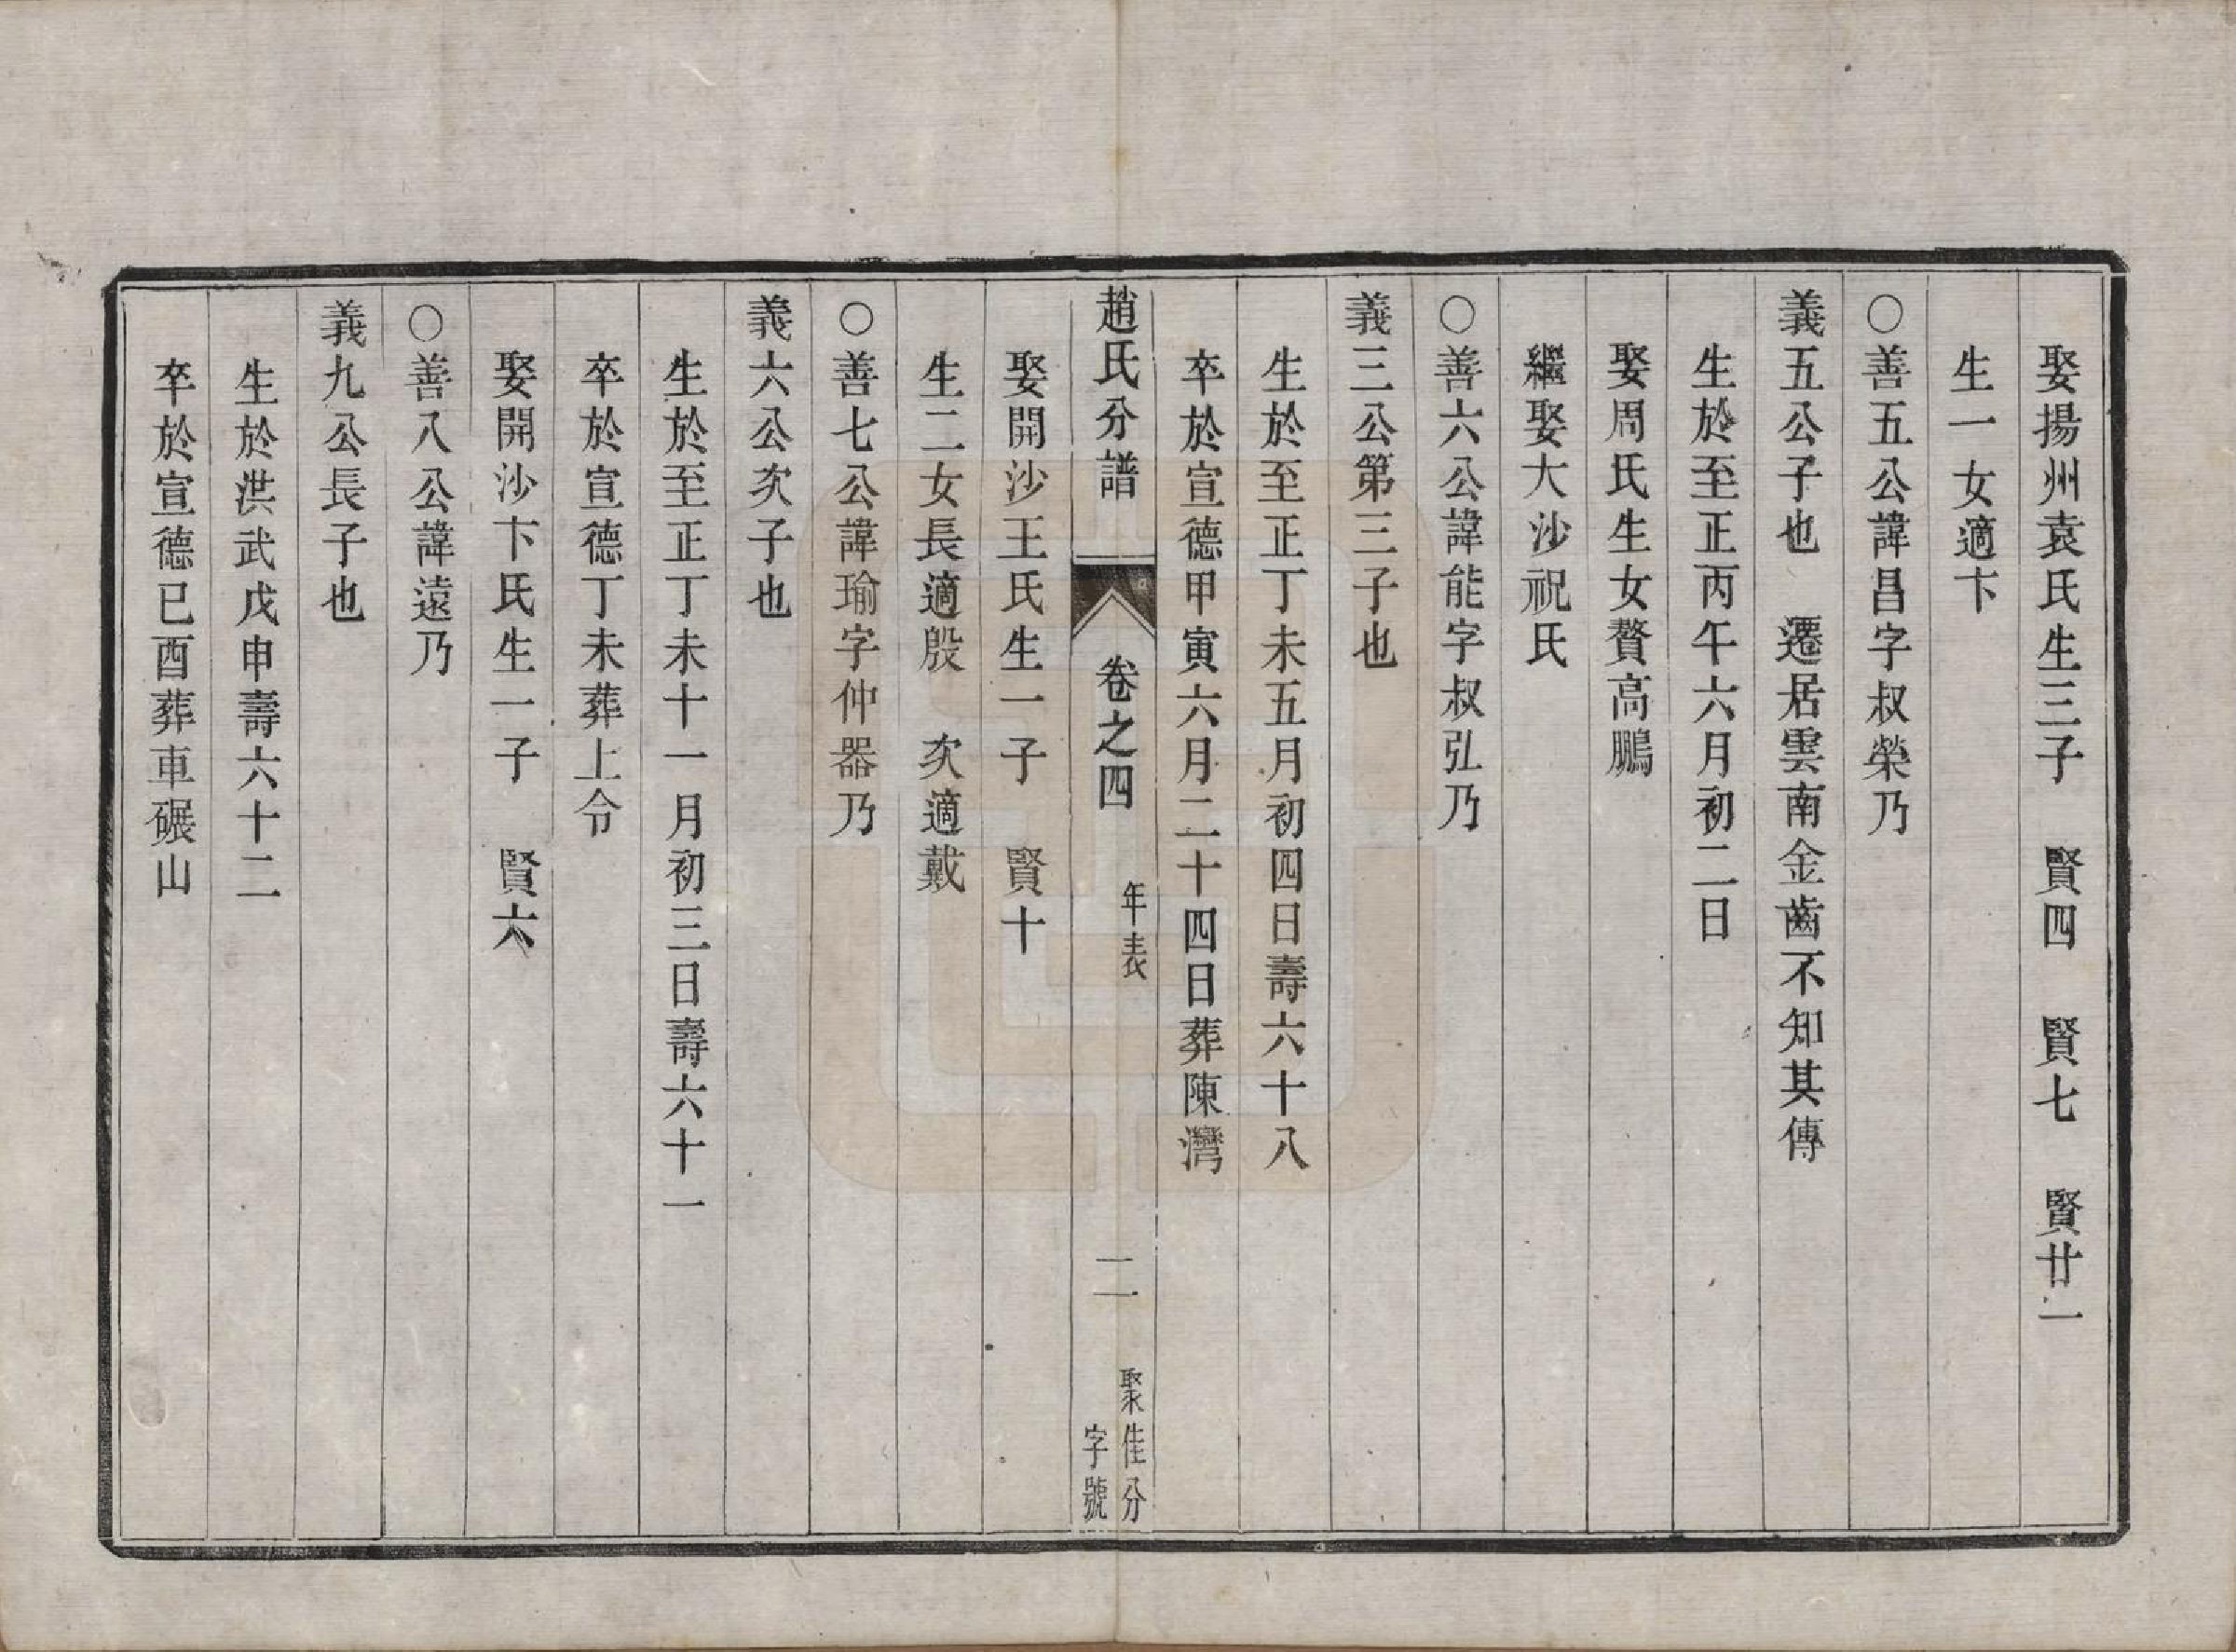 娶揚州袁氏生三子　賢四　賢七　賢廿一
生一女適卞
○善五公諱昌字叔榮乃
義五公子也　遷居雲南金齒不知其傳
生於至正丙午六月初二日
娶周氏生女贅高鵬
繼娶大沙祝氏
○善六公諱能字叔弘乃
義三公第三子也
生於至正丁未五月初四日壽六十八
卒於宣德甲寅六月二十四日葬陳灣
趙氏分譜　卷之四　年表　二　聚佳分字號
娶開沙王氏生一子　賢十
生二女長適殷　次適戴
○善七公諱瑜字仲器乃
義六公次子也
生於至正丁未十一月初三日壽六十一
卒於宣德丁未葬上令
娶開沙卞氏生一子　賢六
○善八公諱遠乃
義九公長子也
生於洪武戊申壽六十二
卒於宣德已酉葬車碾山